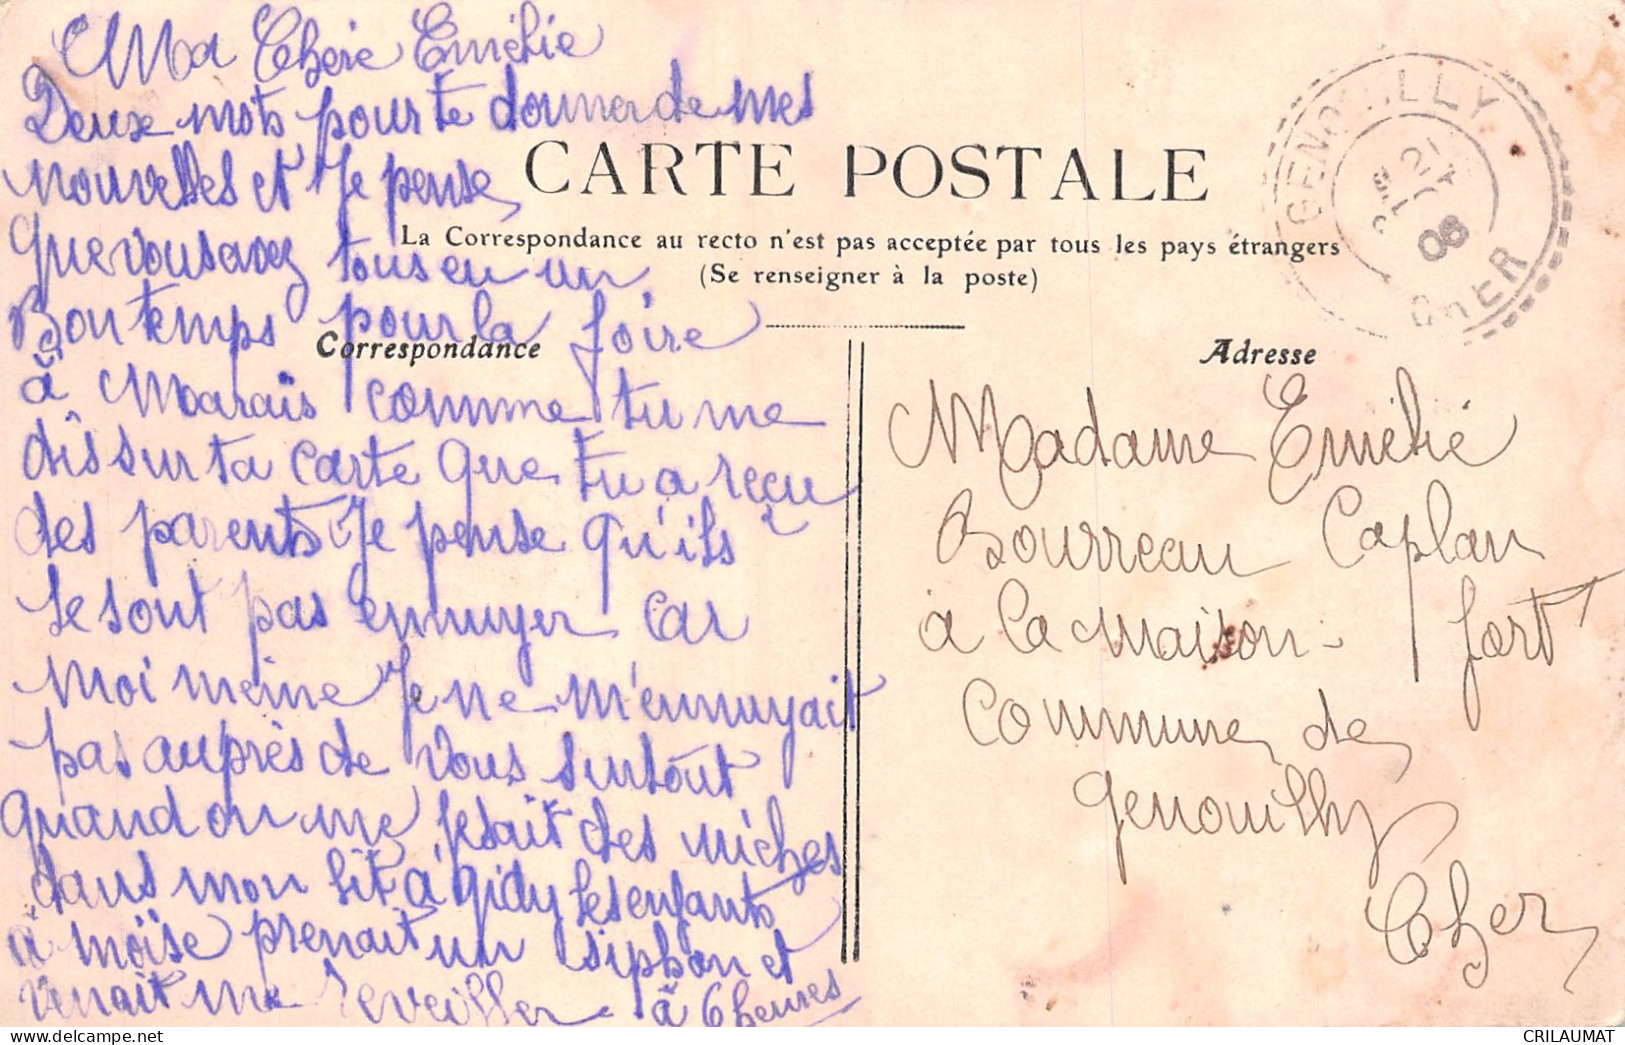 Ma Chère Emélie
Deux mots pour te donner de mes
nouvelles et Je pense
CARTE POSTALE
que vous avez tous eu un
La Correspondance au recto n'est pas acceptée par tous les pays étrangers
(Se renseigner à la poste)
Bon temps pour la foire
Correspondance
à Marais comme tu me
dis sur ta carte que tu a reçu
des parents Je pense qu'ils
se sont pas ennuyer car
moi meine Je ne m'ennuyait
pas auprès de vous surtout
quand on me fesait des niches
dans mon lit a gidy les enfants
à moïse prenait un siphon et
venait me reveiller à 6 heures
GENOUILLY
21
06
CHER
Adresse
Madame Emélie
Bourreau Caplan
à la Maison-fort
Commune de
genouilly
Cher
CRILAUMAT